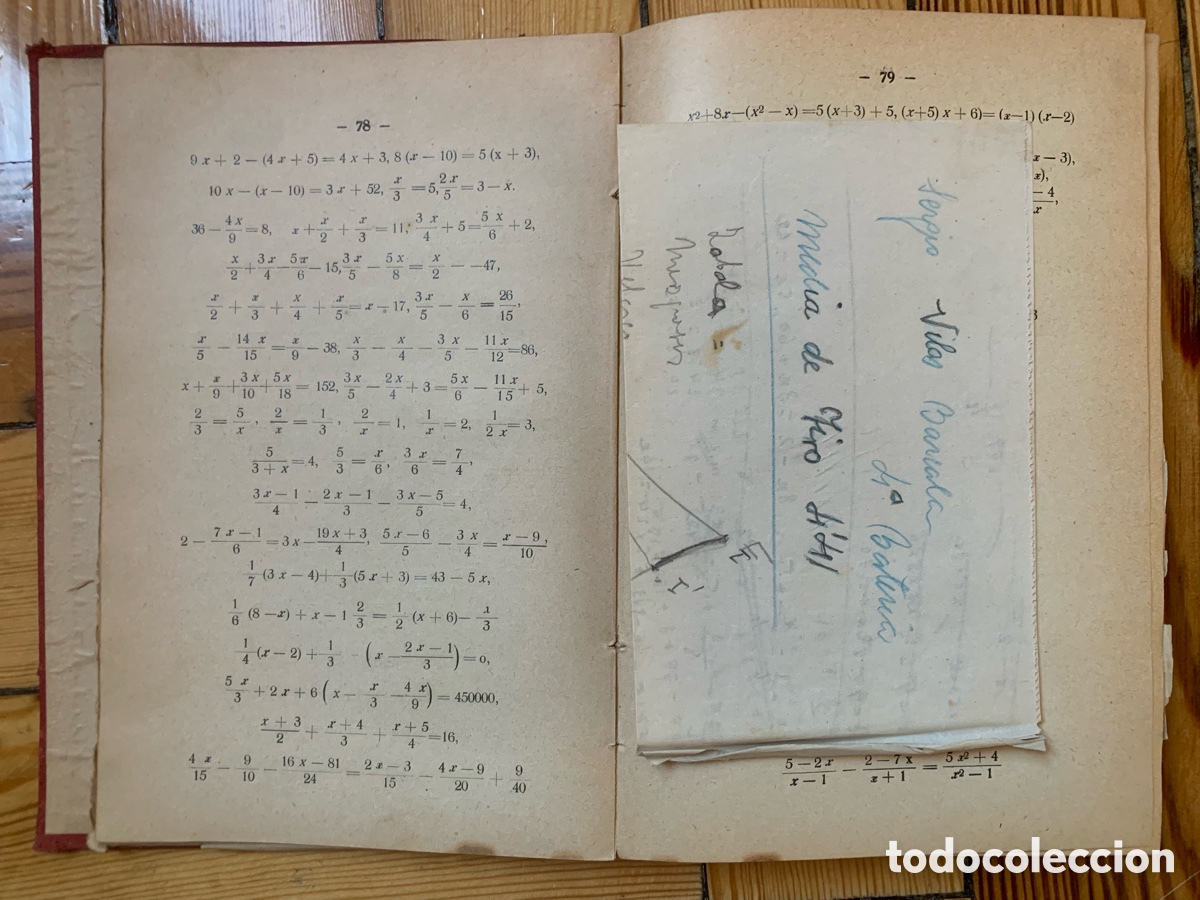 — 78 —
9 x + 2 — (4 x + 5) = 4 x + 3, 8 (x — 10) = 5 (x + 3),
10 x — (x — 10) = 3 x + 52, x/3 = 5, 2 x/5 = 3 — x.
36 — 4 x/9 = 8, x + x/2 + x/3 = 11, 3 x/4 + 5 = 5 x/6 + 2,
x/2 + 3 x/4 — 5 x/6 — 15, 3 x/5 — 5 x/8 = x/2 — —47,
x/2 + x/3 + x/4 + x/5 = x — 17, 3 x/5 — x/6 = 26/15
x/5 — 14 x/15 = x/9 — 38, x/3 — x/4 — 3 x/5 — 11 x/12 = 86,
x + x/9 + 3 x/10 + 5 x/18 = 152, 3 x/5 — 2 x/4 + 3 = 5 x/6 — 11 x/15 + 5,
2/3 = 5/x, 2/x = 1/3, 2/x = 1, 1/x = 2, 1/2 x = 3,
5/3 + x = 4, 5/3 = x/6, 3 x/6 = 7/4,
3 x — 1/4 — 2 x — 1/3 — 3 x — 5/5 = 4,
2 — 7 x — 1/6 = 3 x — 19 x + 3/4, 5 x — 6/5 — 3 x/4 = x — 9/10,
1/7 (3 x — 4) + 1/3 (5 x + 3) = 43 — 5 x,
1/6 (8 — x) + x — 1 2/3 = 1/2 (x + 6) — x/3
1/4 (x — 2) + 1/3 — (x — 2 x — 1/3) = o,
5 x/3 + 2 x + 6 (x — x/3 — 4 x/9) = 450000,
x + 3/2 + x + 4/3 + x + 5/4 = 16,
4 x/15 — 9/10 — 16 x — 81/24 = 2 x — 3/15 — 4 x — 9/20 + 9/40
— 79 —
x² + 8x — (x² — x) = 5 (x + 3) + 5, (x + 5) x + 6) = (x — 1) (x — 2)
x — 3),
x),
— 4/x,
Sergio Vilas Barcala
4ª Bateria
Media de Tiro 4'41
5 — 2 x/x — 1 — 2 — 7 x/x + 1 = 5 x² + 4/x² — 1
todocoleccion